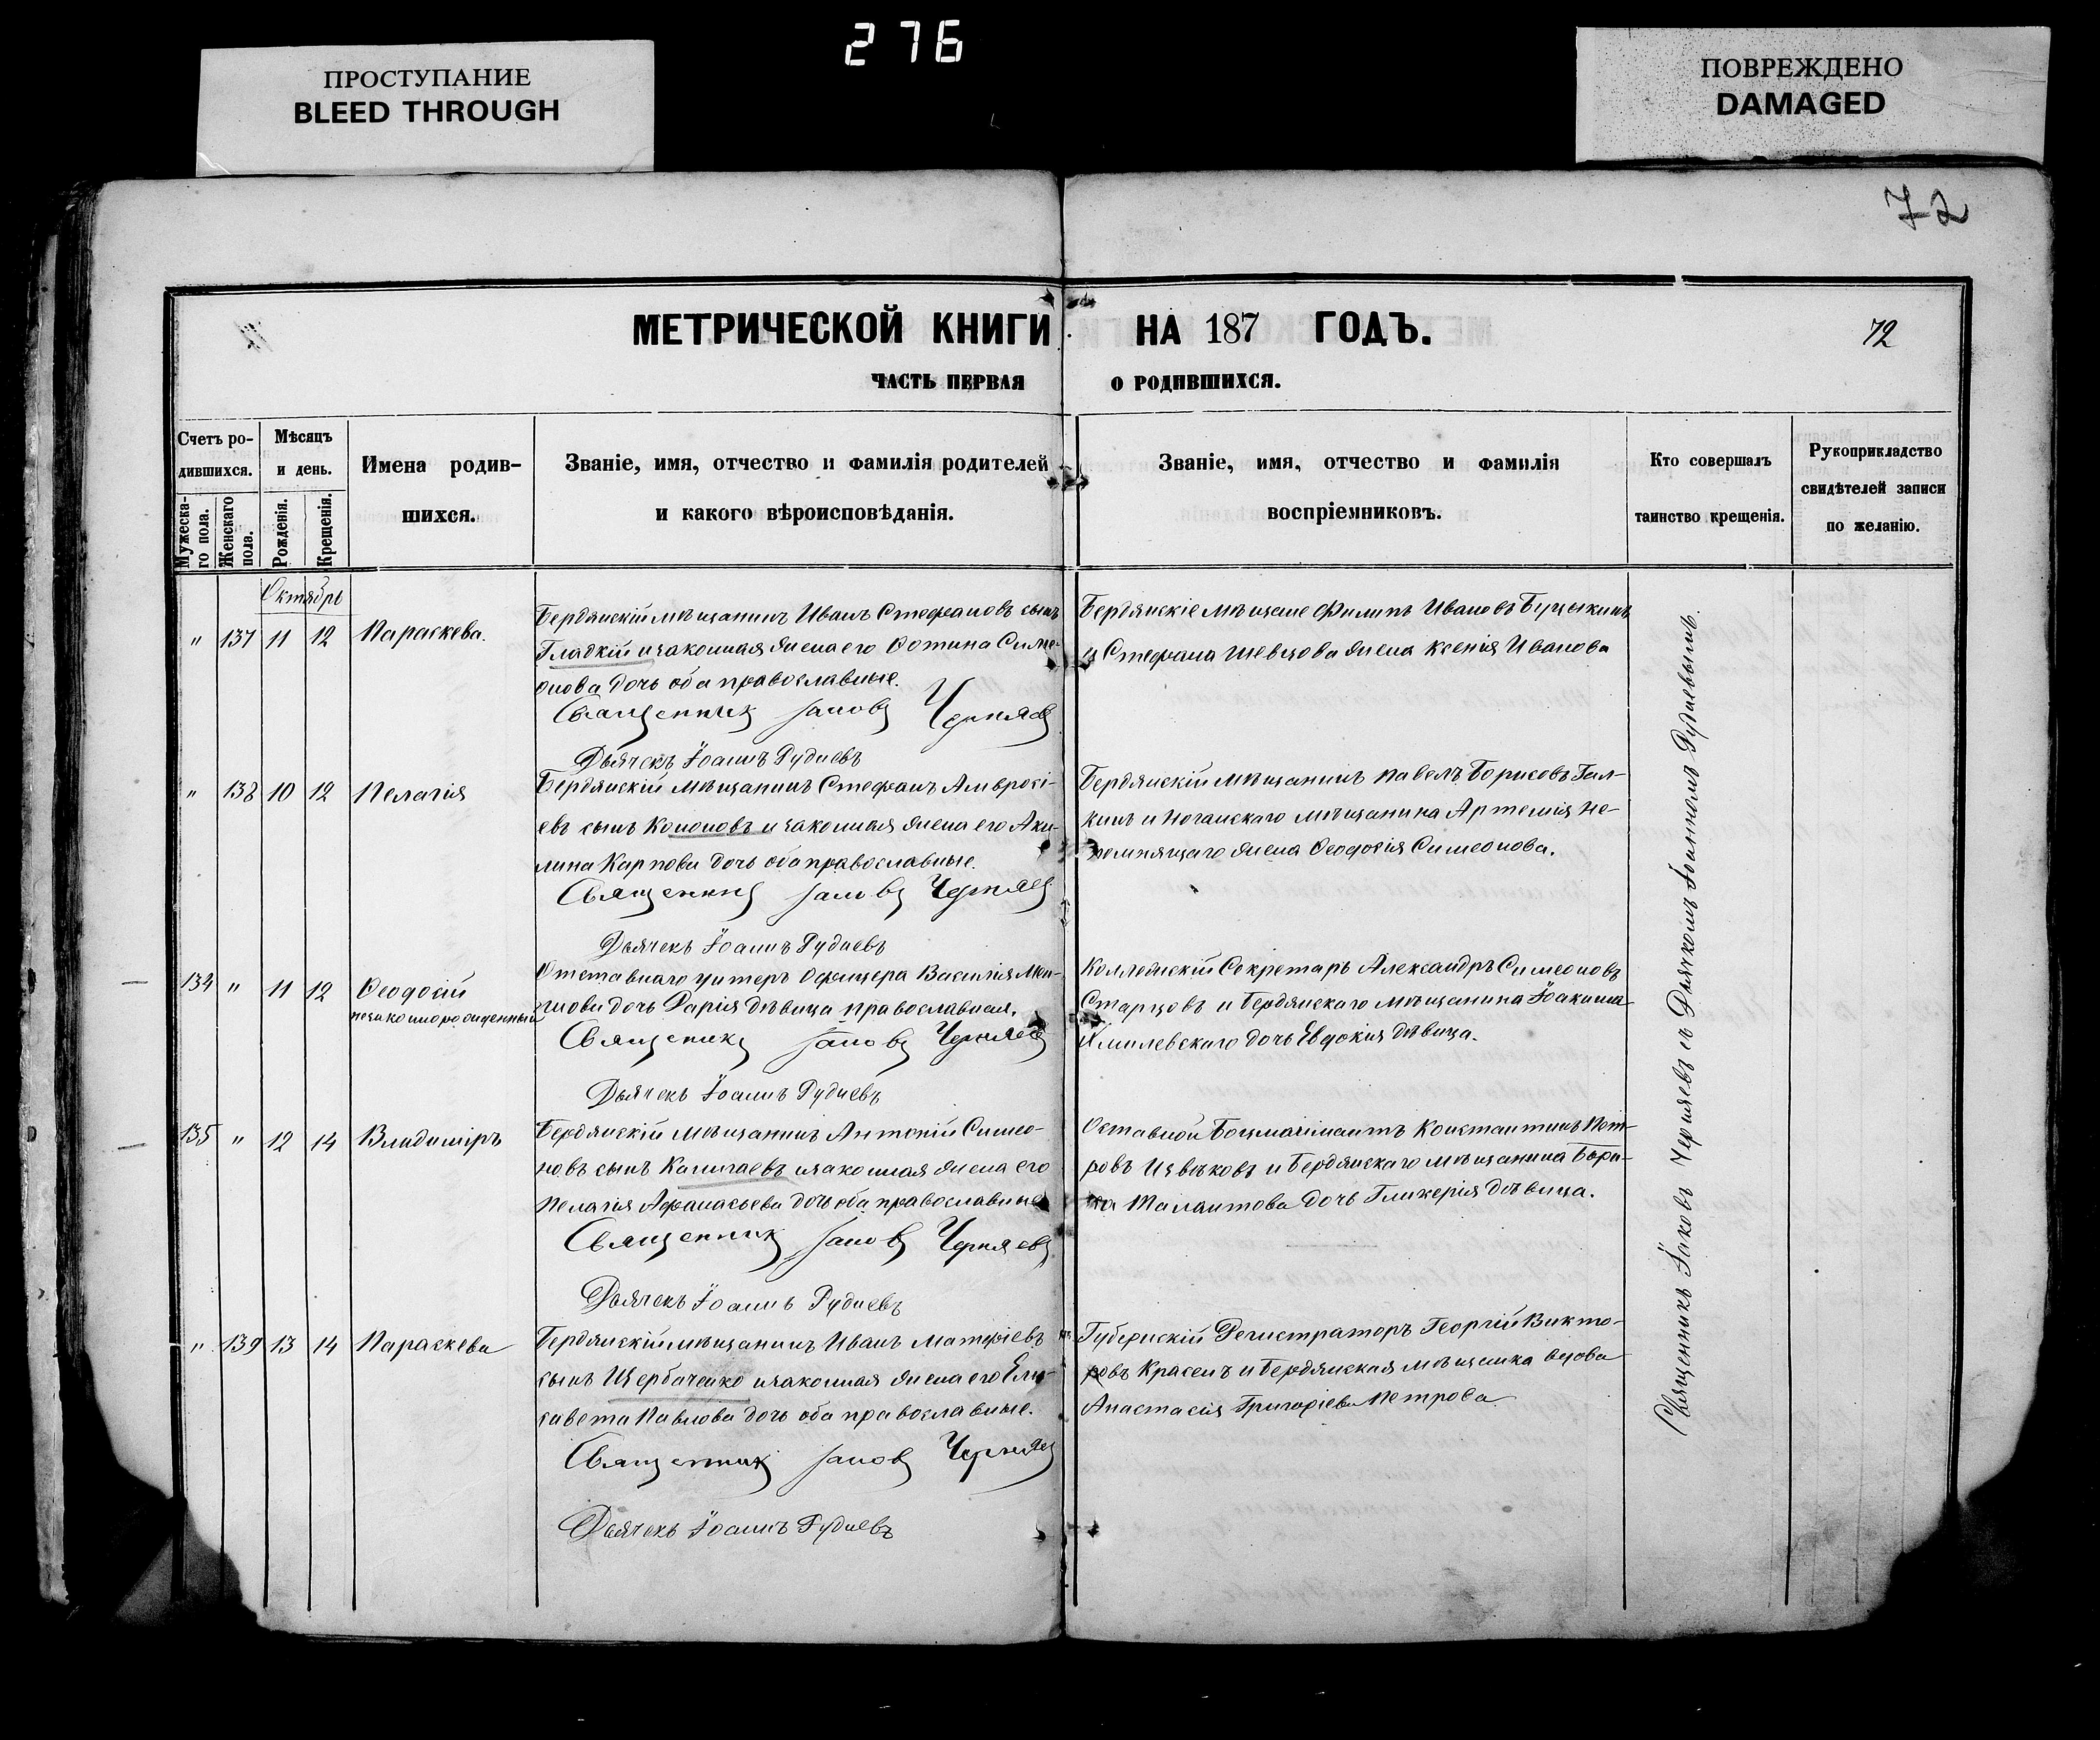 276
ПРОСТУПАНИЕ
BLEED THROUGH
ПОВРЕЖДЕНО
DAMAGED
72
МЕТРИЧЕСКОЙ КНИГИ НА 187 ГОДЪ.
72
ЧАСТЬ ПЕРВАЯ О РОДИВШИХСЯ.
Счетъ ро-
дившихся.
Мужеска-
го пола.
Женскаго
пола.
Мѣсяцъ
и день.
Рожденія.
Крещенія.
Имена родив-
шихся.
Званіе, имя, отчество и фамилія родителей
и какого вѣроисповѣданія.
Званіе, имя, отчество и фамилія
воспріемниковъ.
Кто совершалъ
таинство крещенія.
Рукоприкладство
свидѣтелей записи
по желанію.
Октябрь
" 137 11 12 Параскева.
Бердянскій мѣщанинъ Иванъ Стефановъ сынъ
Гладкій и законная жена его Фотина Симе-
онова дочь оба православные.
Священникъ Іаковъ Черняев
Дьячекъ Іоаннъ Рудневъ
Бердянскіе мѣщане Филипъ Ивановъ
и Стефана Шевцова жена Ксенія Иванова
" 138 10 12 Пелагія
Бердянскій мѣщанинъ Стефанъ Амвросі-
евъ сынъ Кононовъ и законная жена его Аки-
лина Карпова дочь оба православные.
Священник Іаковъ Черняев
Дьячекъ Іоаннъ Рудневъ
Бердянскій мѣщанинъ Павелъ Борисовъ Гал-
кинъ и Ногайскаго мѣщанина Артемія Не-
помнящаго жена Феодосія Симеонова.
134 " 11 12 Феодосій
незаконнорожденный
Отставнаго унтеръ офицера Василія
дочь Дарія дѣвица православная.
Священикъ Іаковъ Черняев
Дьячекъ Іоаннъ Рудневъ
Коллежскій Секретарь Александръ Симеоновъ
Старцовъ и Бердянскаго мѣщанина Іоакима
Хмилевскаго дочь Евдокія дѣвица.
135 " 12 14 Владиміръ
Бердянскій мѣщанинъ Антоній Симео-
новъ сынъ и законная жена его
Пелагія Афанасьева дочь оба православные
Священникъ Іаковъ Черняевъ
Дьячекъ Іоаннъ Рудневъ
Константинъ Пет-
ровъ и Бердянскаго мѣщанина Бори-
са Талантова дочь Гликерія дѣвица.
" 139 13 14 Параскева
Бердянскій мѣщанинъ Иванъ Матфіевъ
сынъ Щербаченко и законная жена его Ели-
савета Павлова дочь оба православные.
Священникъ Іаковъ Черняев
Дьячекъ Іоаннъ Рудневъ
Губернскій Регистраторъ Георгій Викто-
ровъ Красенъ и Бердянская мѣщанка вдова
Анастасія Григоріева Петрова
Священникъ Іаковъ Черняевъ съ Дьячкомъ Іоанномъ Рудневымъ.